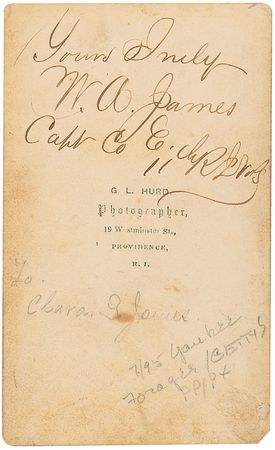 Yours Truly
W. A. James
Capt Co E, 11th R I Vols
G. L. HURD,
Photographer,
19 Westminster St.,
PROVIDENCE,
R. I.
To.
Clara. S. James.
Yankee
Forager